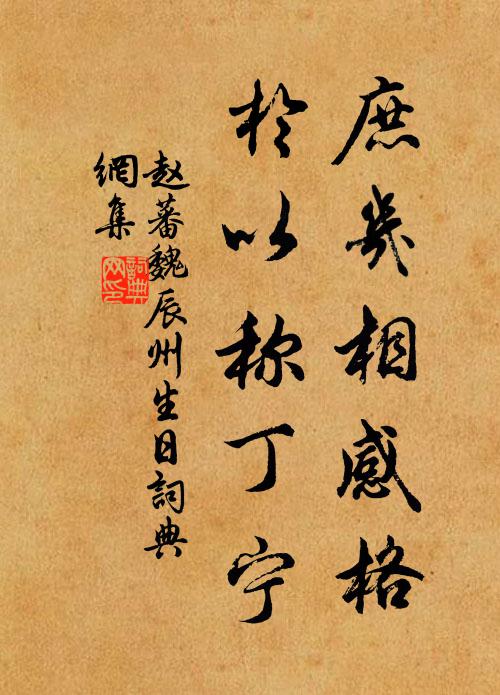 庶幾相感格
於以称丁宁
赵蕃魏辰州生日詞典
網集
詞典
网印